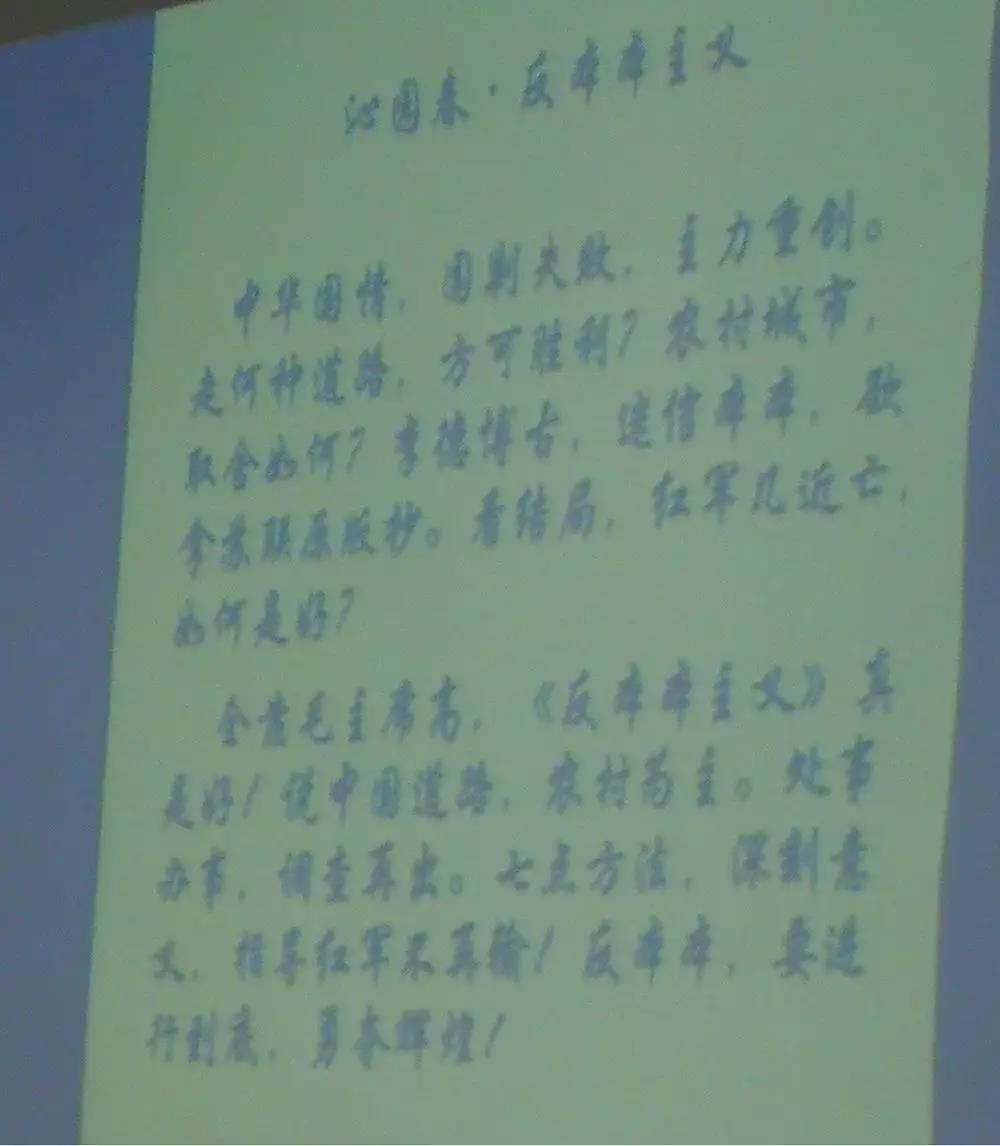 沁园春·反本本主义
中华国情，围剿失败，主力重创。
走何种道路，方可胜利？农村城市，
取舍如何？李德博古，迷信本本，欲
拿苏联原版抄。看结局，红军几近亡，
如何是好？
全靠毛主席高，《反本本主义》真
是好！说中国道路，农村为主。处事
办事，调查再出。七点方法，深刻意
义，指导红军不再输！反本本，要进
行到底，勇夺辉煌！